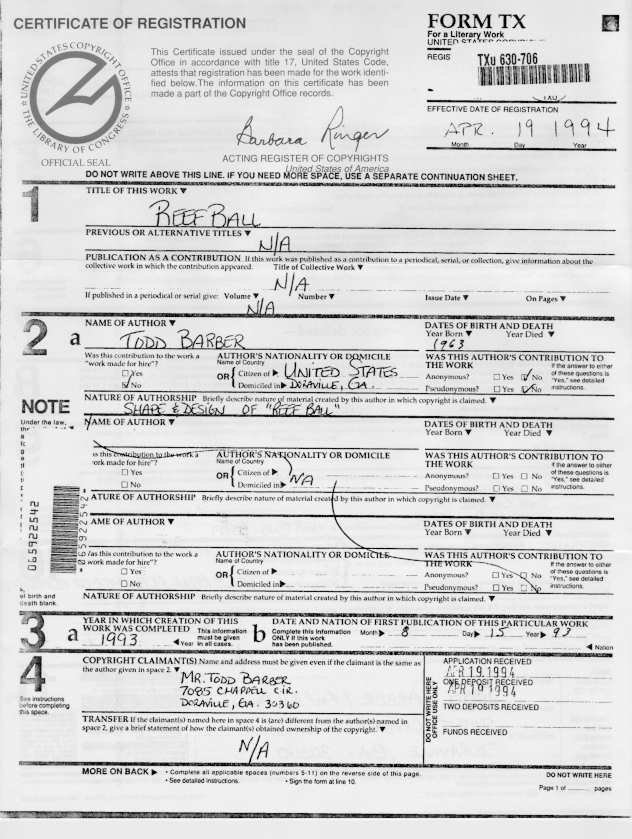 CERTIFICATE OF REGISTRATION
FORM TX
For a Literary Work
UNITED STATES COPYRIGHT
REGIS
TXu 630-706
TXU
EFFECTIVE DATE OF REGISTRATION
APR. 19 1994
Month Day Year
UNITED STATES COPYRIGHT OFFICE
THE LIBRARY OF CONGRESS
OFFICIAL SEAL
This Certificate issued under the seal of the Copyright
Office in accordance with title 17, United States Code,
attests that registration has been made for the work identi-
fied below. The information on this certificate has been
made a part of the Copyright Office records.
Barbara Ringer
ACTING REGISTER OF COPYRIGHTS
United States of America
DO NOT WRITE ABOVE THIS LINE. IF YOU NEED MORE SPACE, USE A SEPARATE CONTINUATION SHEET.
1
TITLE OF THIS WORK ▼
REEF BALL
PREVIOUS OR ALTERNATIVE TITLES ▼
N/A
PUBLICATION AS A CONTRIBUTION If this work was published as a contribution to a periodical, serial, or collection, give information about the
collective work in which the contribution appeared. Title of Collective Work ▼
N/A
If published in a periodical or serial give: Volume ▼ Number ▼ Issue Date ▼ On Pages ▼
N/A
2
a
NAME OF AUTHOR ▼
TODD BARBER
DATES OF BIRTH AND DEATH
Year Born ▼ Year Died ▼
1963
Was this contribution to the work a
"work made for hire"?
☐ Yes
☑ No
AUTHOR'S NATIONALITY OR DOMICILE
Name of Country
OR { Citizen of ▶ UNITED STATES
Domiciled in ▶ DORAVILLE, GA.
WAS THIS AUTHOR'S CONTRIBUTION TO
THE WORK
Anonymous? ☐ Yes ☑ No
Pseudonymous? ☐ Yes ☑ No
If the answer to either
of these questions is
"Yes," see detailed
instructions.
NATURE OF AUTHORSHIP Briefly describe nature of material created by this author in which copyright is claimed. ▼
SHAPE & DESIGN OF "REEF BALL"
NOTE
Under the law,
NAME OF AUTHOR ▼
DATES OF BIRTH AND DEATH
Year Born ▼ Year Died ▼
is this contribution to the work a
work made for hire"?
☐ Yes
☐ No
AUTHOR'S NATIONALITY OR DOMICILE
Name of Country
OR { Citizen of ▶
Domiciled in ▶
N/A
WAS THIS AUTHOR'S CONTRIBUTION TO
THE WORK
Anonymous? ☐ Yes ☐ No
Pseudonymous? ☐ Yes ☐ No
If the answer to either
of these questions is
"Yes," see detailed
instructions.
ATURE OF AUTHORSHIP Briefly describe nature of material created by this author in which copyright is claimed. ▼
AME OF AUTHOR ▼
DATES OF BIRTH AND DEATH
Year Born ▼ Year Died ▼
as this contribution to the work a
work made for hire"?
☐ Yes
☐ No
AUTHOR'S NATIONALITY OR DOMICILE
Name of Country
OR { Citizen of ▶
Domiciled in ▶
WAS THIS AUTHOR'S CONTRIBUTION TO
THE WORK
Anonymous? ☐ Yes ☐ No
Pseudonymous? ☐ Yes ☐ No
If the answer to either
of these questions is
"Yes," see detailed
instructions.
of birth and
death blank.
NATURE OF AUTHORSHIP Briefly describe nature of material created by this author in which copyright is claimed. ▼
3
a
YEAR IN WHICH CREATION OF THIS
WORK WAS COMPLETED
1993 ◀ Year
This information
must be given
in all cases.
b
DATE AND NATION OF FIRST PUBLICATION OF THIS PARTICULAR WORK
Complete this information
ONLY if this work
has been published.
Month ▶ 8 Day ▶ 15 Year ▶ 93
◀ Nation
4
See instructions
before completing
this space.
COPYRIGHT CLAIMANT(S) Name and address must be given even if the claimant is the same as
the author given in space 2. ▼
MR. TODD BARBER
7085 CHAPPELL CIR.
DORAVILLE, GA. 30360
TRANSFER If the claimant(s) named here in space 4 is (are) different from the author(s) named in
space 2, give a brief statement of how the claimant(s) obtained ownership of the copyright. ▼
N/A
DO NOT WRITE HERE
OFFICE USE ONLY
APPLICATION RECEIVED
APR 19.1994
ONE DEPOSIT RECEIVED
APR 19 1994
TWO DEPOSITS RECEIVED
FUNDS RECEIVED
MORE ON BACK ▶
• Complete all applicable spaces (numbers 5-11) on the reverse side of this page.
• See detailed instructions. • Sign the form at line 10.
DO NOT WRITE HERE
Page 1 of pages